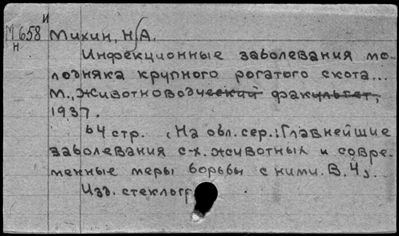 И
М 658 Михин, Н.А.
н
Инфекционные заболевания мо-
лодняка крупного рогатого скота...
М., Животноводческий факультет,
1937.
64 стр. (На обл. сер.: Главнейшие
заболевания с-х. животных и совре-
менные меры борьбы с ними. В. 4)...
Изд. стеклогр